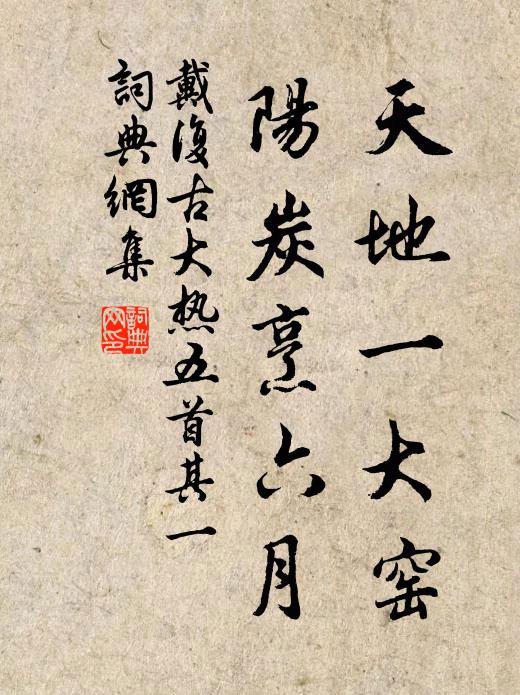 天地一大窑
陽炭烹六月
戴復古大热五首其一
詞典網集
詞典網印